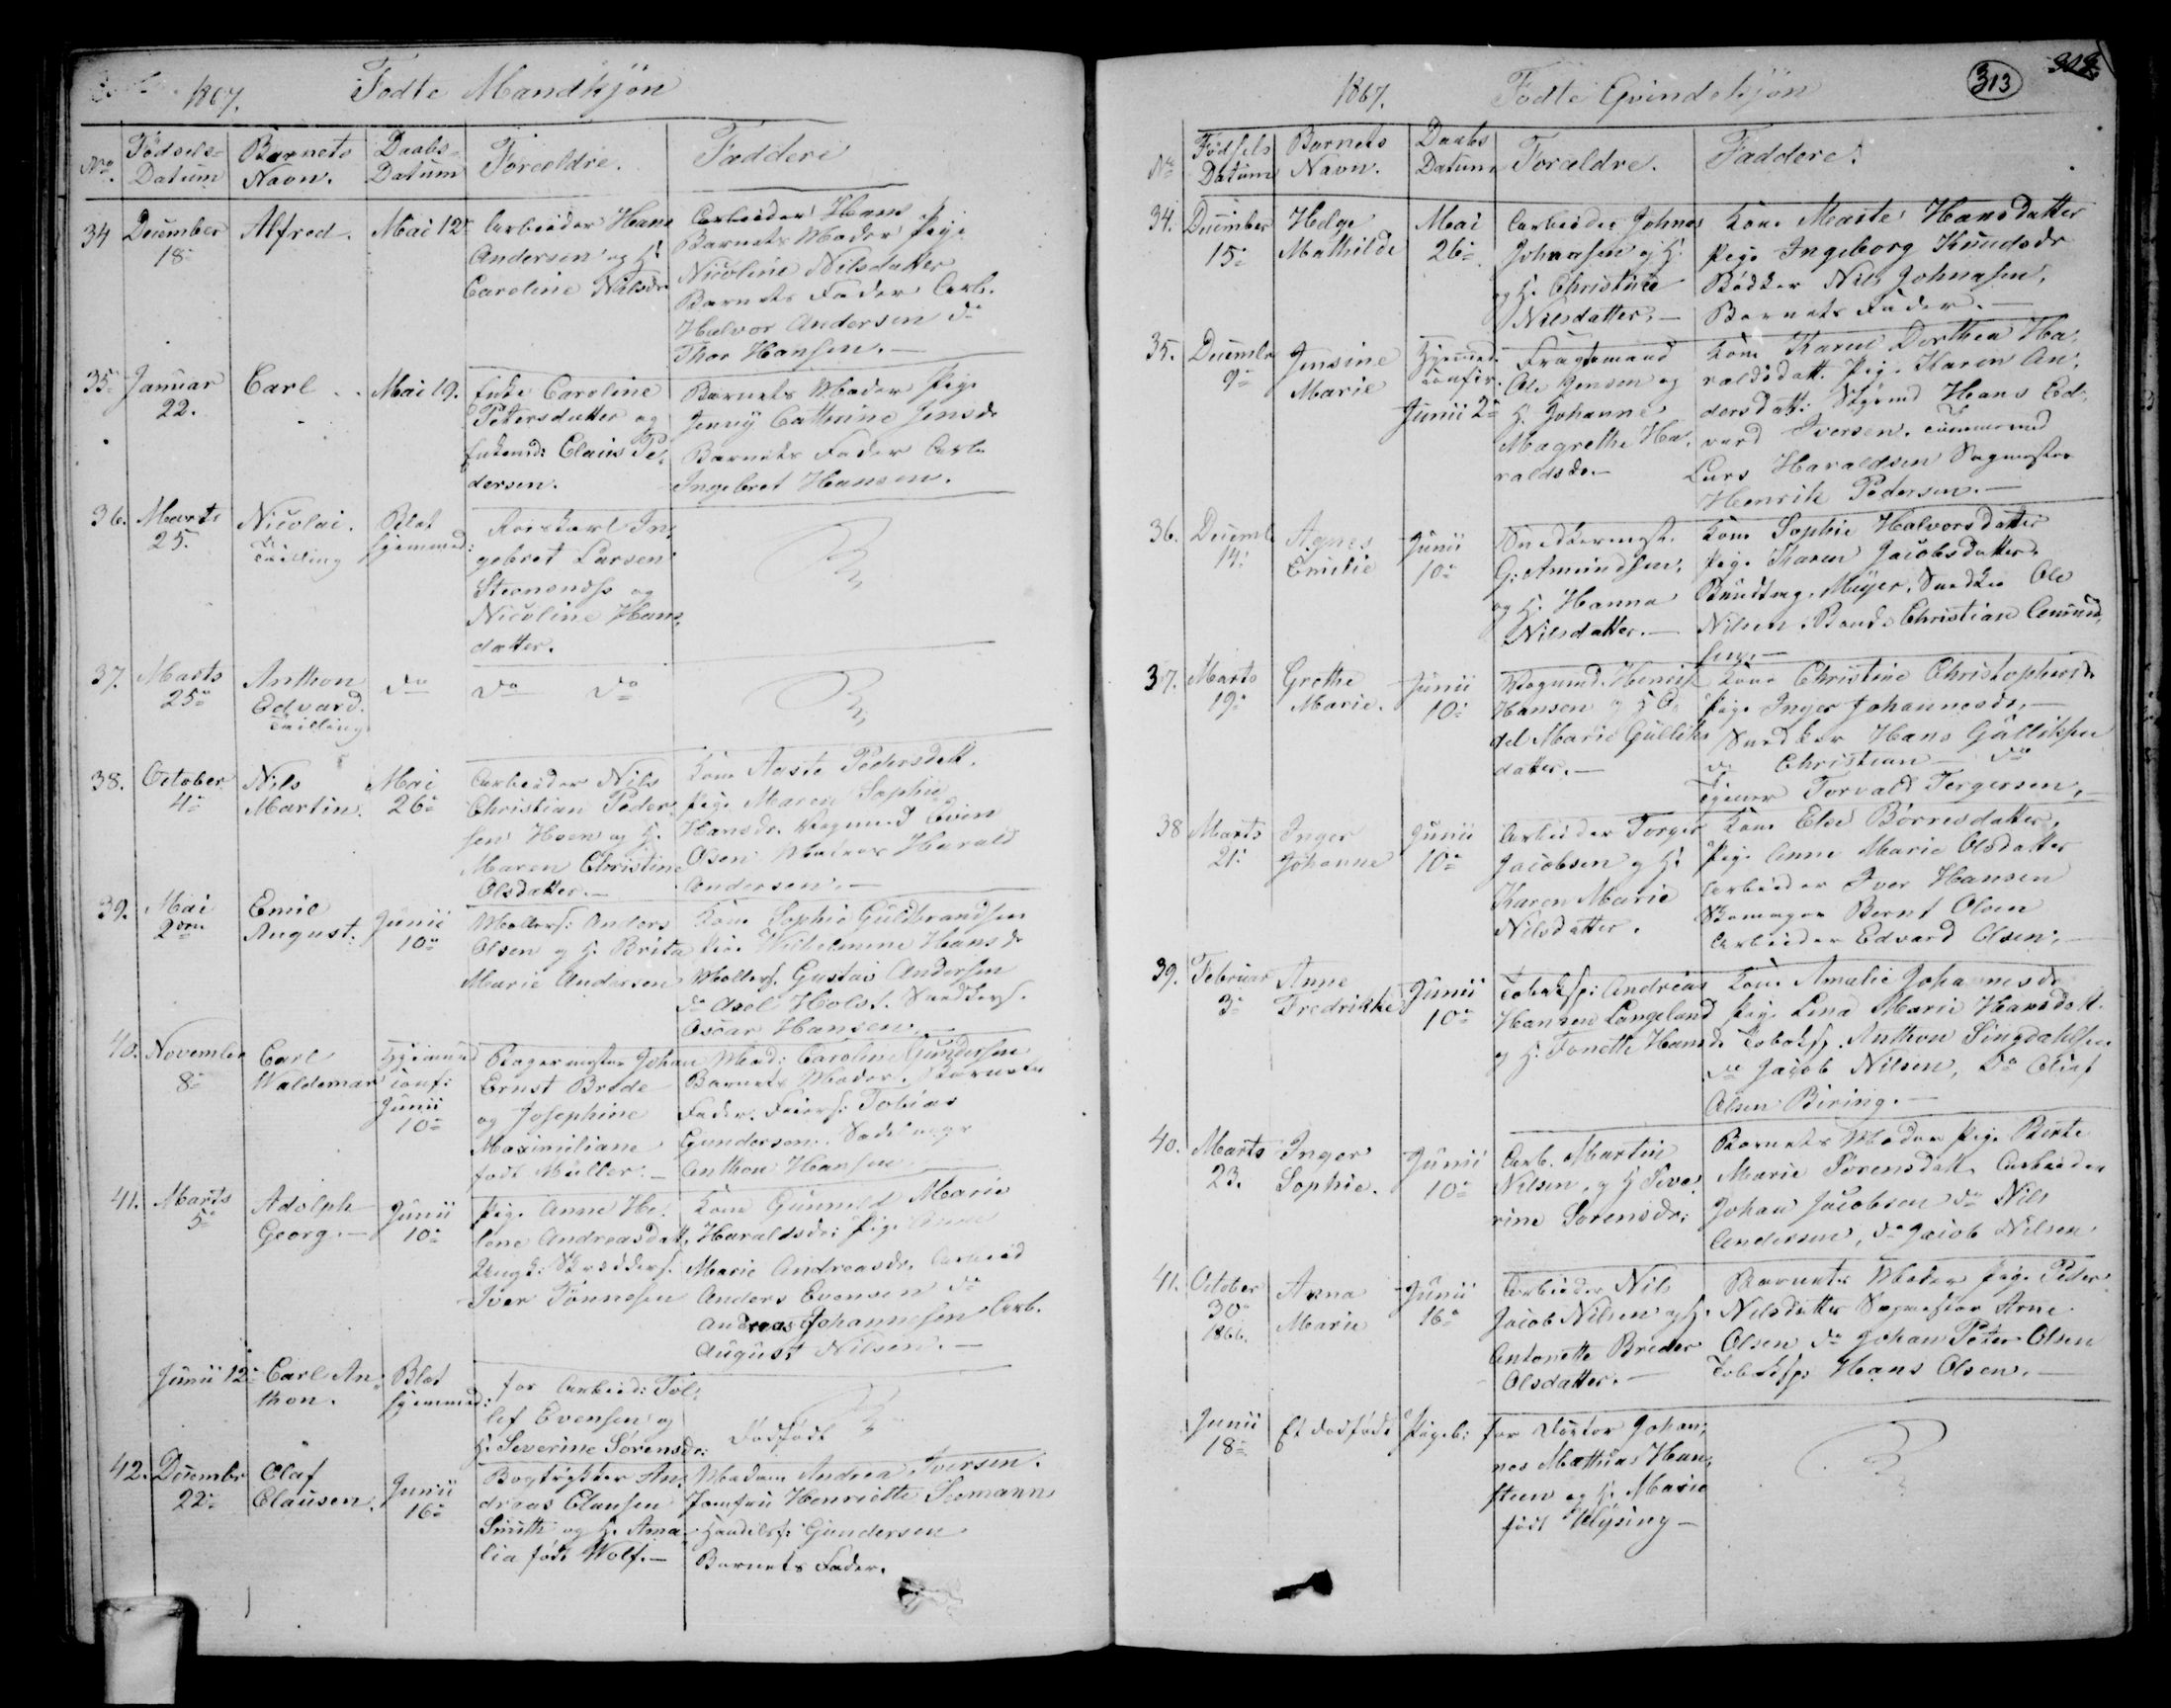 1867. Fødte Mandkjøn
No. Fødsels-Datum Barnets Navn. Daabs-Datum Forældre. Faddere
34 December 18de Alfred. Mai 12te
Arbeider Hans
Andersen og H:
Caroline Nilsdr.
Arbeider Hans
Barnets Moder Pige
Nicoline Nilsdatter
Barnets Fader Arb.
Halvor Andersen do
Thor Hansen.—
35 Januar 22. Carl. Mai 19.
Enke Caroline
Petersdatter og
Enkemd: Claus Pe-
dersen.
Barnets Moder Pige
Jenny Cathrine Jensdr
Barnets Fader Arb.
Ingebret Hansen.
36. Marts 25. Nicolai. Tvilling Blot hjemmed:
Ingebret Larsen
og
Nicoline Hans-
datter.
37. Marts 25de Anthon Edvard. Tvilling do
do do
38. October 4de Nils Martin. Mai 26de
Arbeider Nils
Christian Peder-
sen og H.
Maren Christine
Olsdatter.—
Kone Aaste Pedersdatt.
Pige Maren Sophie
Hansdr. Even
Olsen Harald
Andersen.—
39. Mai 2den Emil August. Junii 10de
Anders
Olsen og H. Brita
Marie Andersen
Kone Sophie Guldbrandsen
Pige Wilhelmine Hansdr
Gustav Andersen
do Axel Holst. Snedkers.
Oscar Hansen.—
40. November 8de Carl Waldemar Hjemmed Conf: Junii 10de
Bagermester Johan
Ernst Brode
og Josephine
Maximiliane
født Müller.—
Mad: Caroline Gundersen
Barnets Moder. Barnets
Fader. Tobias
Gundersen. Sadelmager
Anthon Hansen
41. Marts 5te Adolph Georg.— Junii 10de
Pige Anne He-
lene Andreasdatt.
Ungk: Skrædders.
Iver Tønnesen
Kone Gunnild Marie
Haraldsdr: Pige Anne
Marie Andreasdr. Arbeid
Anders Evensen do
Andreas Johannesen Arb.
August Nilsen.—
Junii 12te Carl An-thon. Blot hjemmed:
for Arbeid: Tol-
lef Evensen og
H. Severine Sørensdr:
Dødfødt
42. Decembr 22de Olaf Clausen. Junii 16de
Bogtrykker An-
dreas Clausen
Smith og H. Ama-
lia født Wolf.—
Madam Andrea Iversen.
Jomfru Henriette Seemann
Handelsf: Gundersen
Barnets Fader.
1867. Fødte Qvindekjøn 313
No Fødsels Datum Barnets Navn. Daabs Datum Forældre. Faddere.
34. December 15de Helga Mathilde Mai 26de
Arbeider Johnas
Johnasen og H.
og H. Christine
Nilsdatter.—
Kone Marte Hansdatter
Pige Ingeborg Knudsdr
Bødker Nils Johnasen,
Barnets Fader.—
35. Decembr 9de Jensine Marie Hjemmed. Confir. Junii 2de
Fragtemand
Ole Jensen og
H. Johanne
Magrethe Ha-
raldsdr.—
Kone Karen Dorthea Ha-
raldsdatt. Pige Karen An-
dersdatt: Søemd Hans Ed-
vard Iversen. Tømmermd
Lars Haraldsen Sagmester
Henrik Pedersen.—
36. Decemb. 14de Agnes Emilie Junii 10de
Snedkermest.
G: Amundsen,
og H. Hanna
Nilsdatter.—
Kone Sophie Halvorsdatter
Pige Karen Jacobsdatter,
Bundtm. Meyer, Snedker Ole
Nilsen. Christian Amund-
sen.—
37. Marts 19de Grethe Marie. Junii 10de
Vognmd. Henrik
Hansen og H O-
del Marie Gulliks-
datter.—
Kone Christine Christophersdr
Pige Inger Johannesdr.—
Snedker Hans Gulliksen
do Christian — do
Tjener Torvald Tergersen.—
38 Marts 21de Inger Johanne Junii 10de
Arbeider Torger
Jacobsen og H:
Karen Marie
Nilsdatter.
Kone Else Børresdatter,
Pige Anne Marie Olsdatter
Arbeider Iver Hansen
Skomager Bernt Olsen
Arbeider Edvard Olsen.—
39. Februar 3de Anne Fredrikke Junii 10de
Tobaksp: Andreas
Hansen Langeland
og H. Tonette Hansdr
Kone Amalie Johannesdr
Pige Lena Marie Hansdatt.
Tobaksp. Anthon Singdahlsen
do Jacob Nilsen, Do Oluf
Olsen Biring.—
40. Marts 23. Inger Sophie. Junii 10de
Arb. Martin
Nilsen, og H Seve-
rine Sørensdr:
Barnets Moder Pige Berte
Marie Sørensdatt. Arbeider
Johan Jacobsen do Nils
Andersen, do Jacob Nilsen
41. October 30de 1866. Anna Marie Junii 16de
Arbeider Nils
Jacob Nilsen og H.
Antonette
Olsdatter.—
Barnets Moder Pige Peder
Nilsdatter Sagmester Arne
Olsen do Johan Peter Olsen
Tobaksp: Hans Olsen.—
Junii 18de Et dødfødt Pigeb:
for Doctor Johan-
nes Mathias Han-
steen og H. Marie
født Wysing—